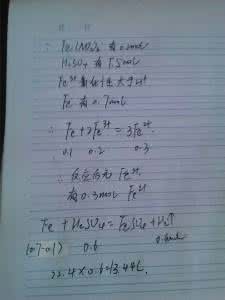 ∵ Fe(NO₃)₃ 有0.2mol
H₂SO₄ 有1.5mol
Fe³⁺氧化性大于H⁺
Fe 有0.7mol
∴ Fe+2Fe³⁺=3Fe²⁺
0.1 0.2 0.3
∴ 反应后无 Fe³⁺
有0.3mol Fe²⁺
Fe + H₂SO₄ = FeSO₄ + H₂↑
(0.7-0.1) 0.6
22.4×0.6=13.44L.